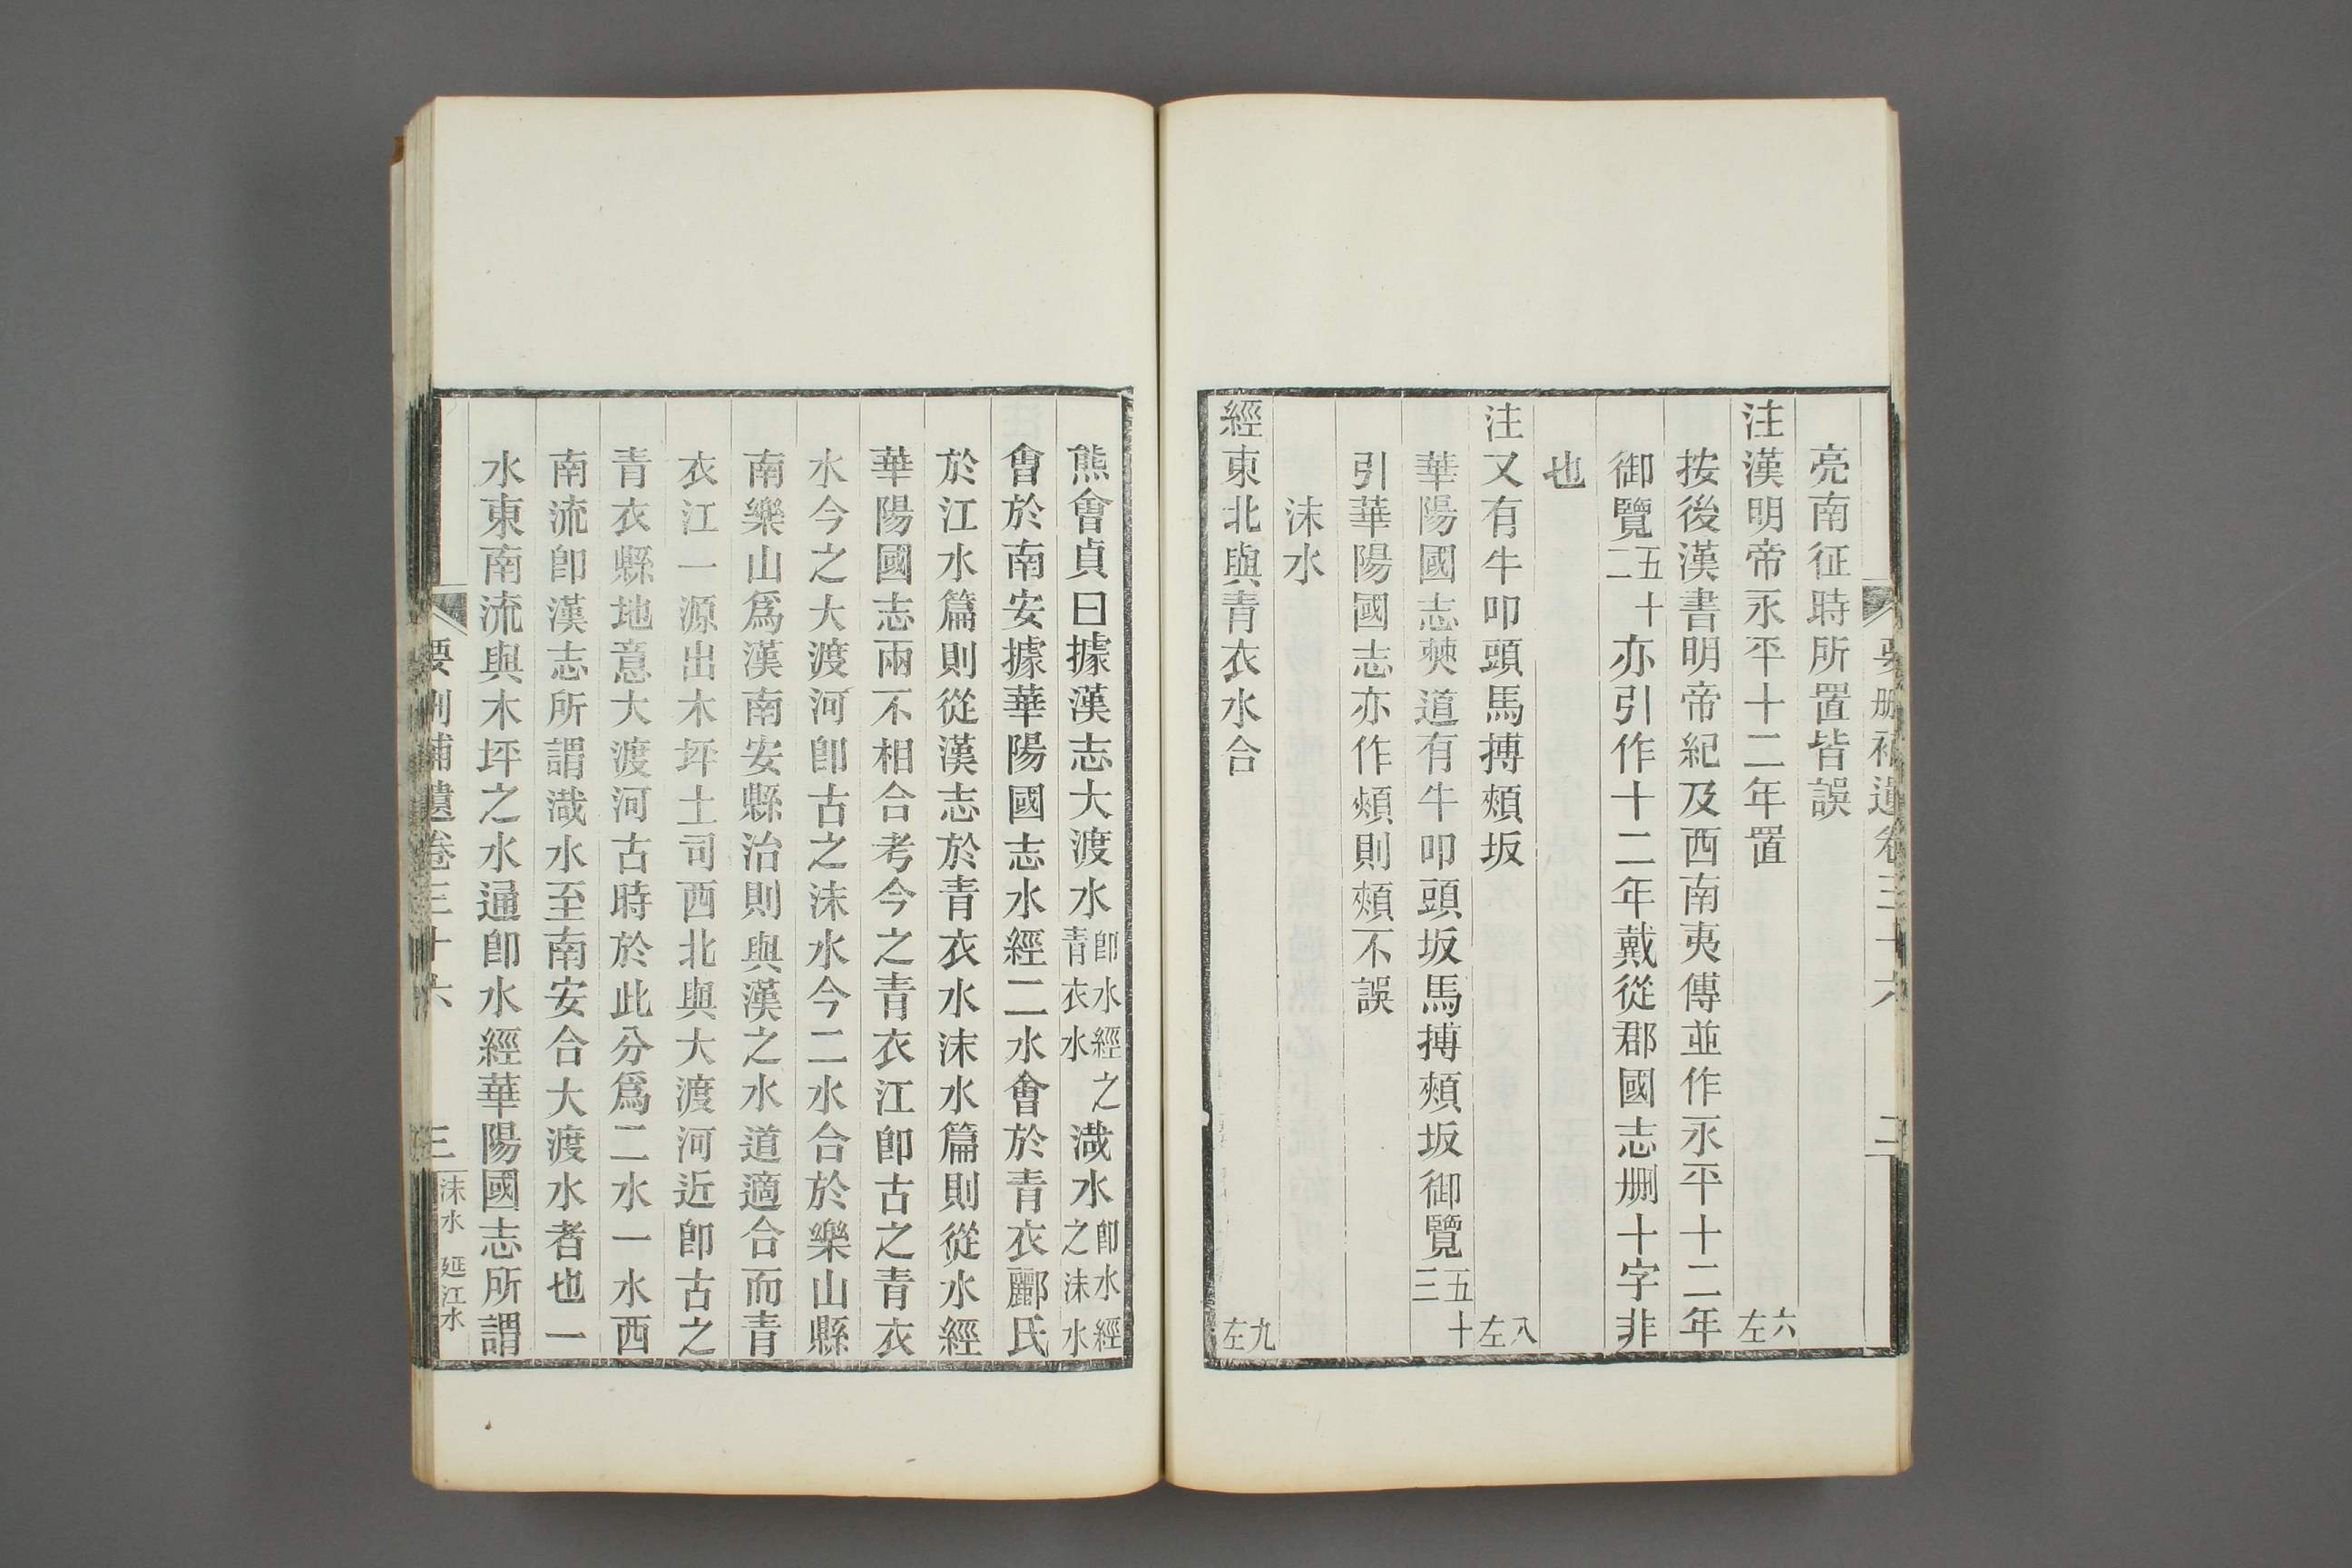 要刪補遺卷三十六 二
亮南征時所置皆誤
注漢明帝永平十二年置 六左
按後漢書明帝紀及西南夷傳並作永平十二年
御覽五十二亦引作十二年戴從郡國志刪十字非
也
注又有牛叩頭馬搏頰坂 八左
華陽國志僰道有牛叩頭坂馬搏頰坂御覽五十三
引華陽國志亦作頰則頰不誤
沫水
經東北與青衣水合 九左
熊會貞曰據漢志大渡水卽水經之青衣水渽水卽水經之沫水
會於南安據華陽國志水經二水會於青衣酈氏
於江水篇則從漢志於青衣水沫水篇則從水經
華陽國志兩不相合考今之青衣江卽古之青衣
水今之大渡河卽古之沫水今二水合於樂山縣
南樂山爲漢南安縣治則與漢之水道適合而青
衣江一源出木坪土司西北與大渡河近卽古之
青衣縣地意大渡河古時於此分爲二水一水西
南流卽漢志所謂渽水至南安合大渡水者也一
水東南流與木坪之水通卽水經華陽國志所謂
要刪補遺卷三十六 三 沫水 延江水